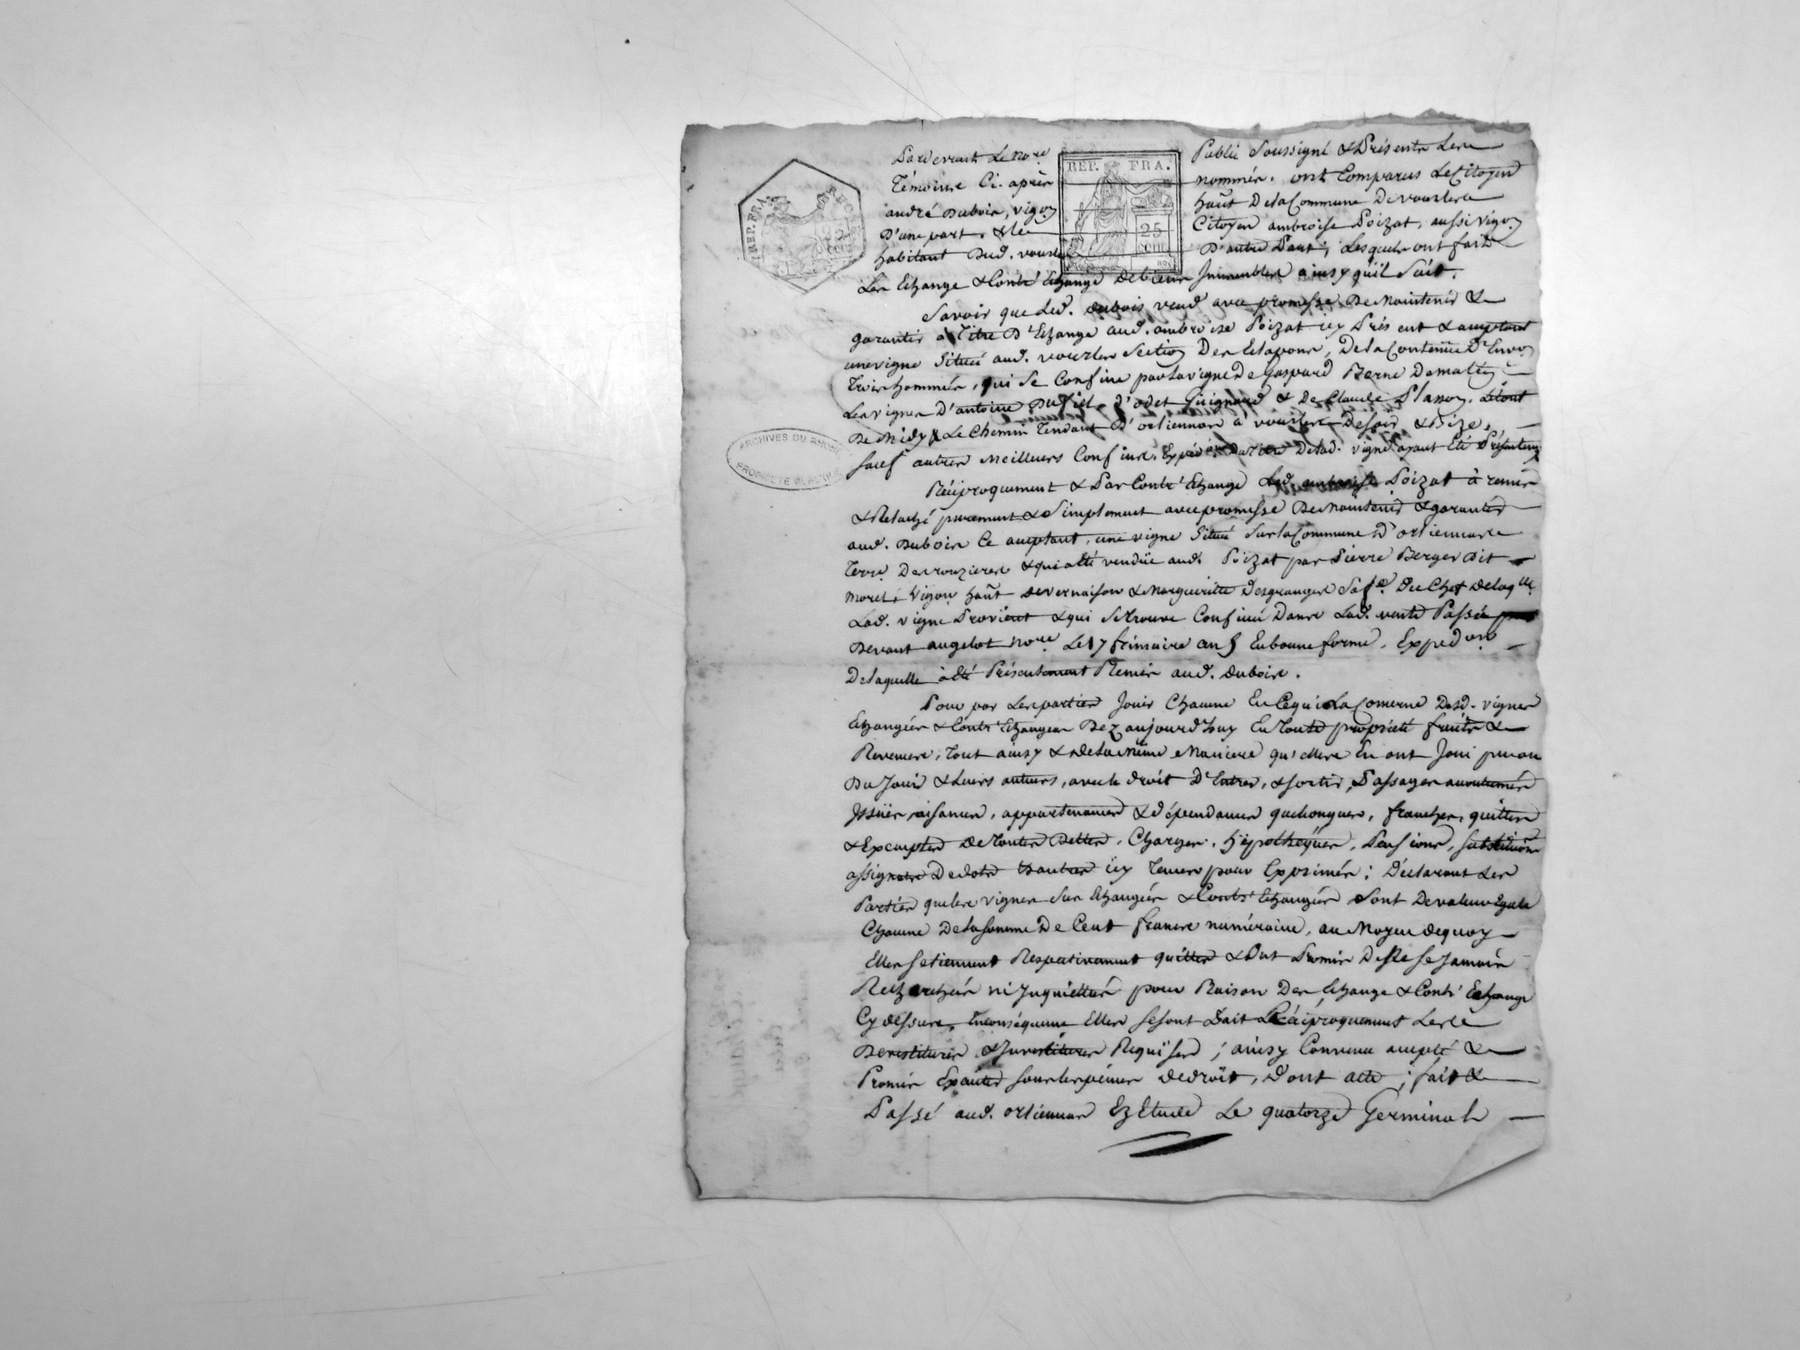 Pardevant Le no.re Public Soussigné & Présents Les
Témoins Ci-après nommés. ont Comparus Le Citoyen
andré Dubois, vigon hañt De la Commune De vourles
D'une part, & Le Citoyen ambroise Poizat, aussi vigon
habitant Dud. vourles D'autre Part; Lesquels ont fait
Les Echange & Contr'Echange De biens Immeubles ainsy qu'il Suit.
Savoir que Led. dubois vend avec promesse De Maintenir &
garantir à Titre D'Echange aud. ambroise Poizat icy Présent & acceptant
une vigne Située aud. vourles Section Des Elapour, De la Contenue D'Envon
Trois hommés, qui Se Confine par La vigne De gaspard Berne De matin
Les vignes D'antoine d'odet Guignard & De Claude Planson.
De Midy & Le Chemin Tendant D'orliennas à vourles De Soir & Bize,
Sauf autres Meilleurs Confins, De lad. vigne ayant Eté
Réciproquement & Par Contr'Echange Led. ambroise Poizat à remis
& Relaché purement & Simplement avec promesse De Maintenir & garantir
aud. Dubois Ce acceptant, une vigne Située Sur la Commune D'orliennas
Terre Des rouzieres & qui a Eté vendüe aud. Poizat par Pierre Berger Dit
Morel, Vigon hañt de vernaison & Marguerite Desgranges Sa fe. Du Chef de laq.lle
Lad. vigne Provient & qui Se trouve Confinée Dans Lad. vente Passée
Devant angelot no.re Le 17 frimaire an 5 En bonne forme. Exped.on
De laquelle à Eté Présentement Remise aud. dubois.
Pour par Les parties Jouir Chacune En Ce qui La Concerne Desd. vignes
Echangées & Contr'Echangées Dez aujourd'huy En toute propriété fruits &
Revenus, Tout ainsy & de la Même Manière qu'elles En ont Joui pu ou
Du Jouir & Leurs auteurs, avec le droit D'Entrer, & Sortir, Passages accoutumés
Issües, aisances, appartenances & dépendances quelconques, franches, quittes
& Exemptes De Toutes Dettes, Charges, Hÿpothèques, Pensions, substitutions
assignats De dots & autres icy Tenus pour Exprimés; Déclarant Les
Parties que les vignes Sus Echangées & Contr'Echangées Sont De valeur Egale
Chacune De la Somme De Cent francs numéraire, au Moyen de quoy
Elles Se tiennent Respectivement quittes & Ont Promis De Ne Se Jamais
Rechercher ni Inquietter pour Raison Des Echange & Contr'Echange
Cy dessus, En conséquence Elles Se Sont Fait Réciproquement Les
Devestitures & Investitures Requises; ainsy Convenu accepté &
Promis Exécuter Sous les peines de droit, Dont acte; fait &
Passé aud. orliennas Ez Etude Le quatorze Germinal
REP. FRA.
25
cen.
REP. FRA.
ARCHIVES DU RHÔNE
PROPRIÉTÉ PUBLIQUE